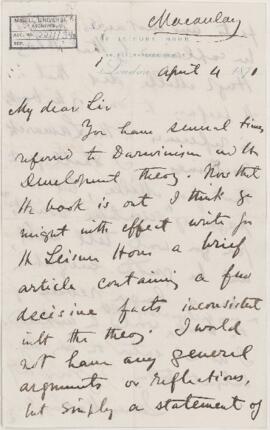 Macaulay
McGILL UNIVERSITY
ARCHIVES
ACC. NO.
REF.
London April 4 1871
My dear Sir
You have several times
referred to Darwinism and the
Development theory. Now that
the book is out I think you
might with effect write for
the Leisure Hour a brief
article containing a few
decisive facts inconsistent
with the theory. I would
not have any general
arguments or reflections,
but simply a statement of